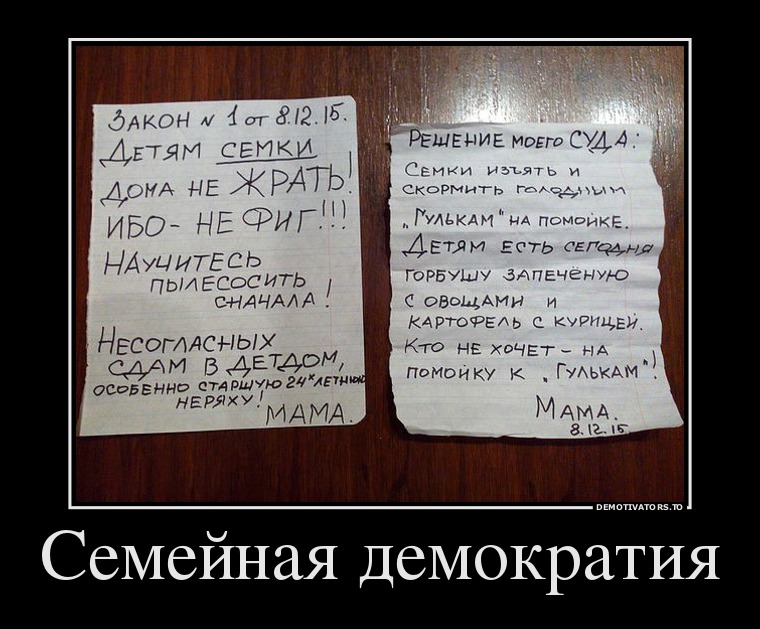 ЗАКОН № 1 от 8.12.15.
ДЕТЯМ СЕМКИ
ДОМА НЕ ЖРАТЬ!
ИБО - НЕ ФИГ!!!
НАУЧИТЕСЬ
ПЫЛЕСОСИТЬ
СНАЧАЛА!
НЕСОГЛАСНЫХ
СДАМ В ДЕТДОМ,
ОСОБЕННО СТАРШУЮ 24ХЛЕТНЮЮ
НЕРЯХУ!
МАМА.
РЕШЕНИЕ МОЕГО СУДА:
СЕМКИ ИЗЪЯТЬ И
СКОРМИТЬ ГОЛОДНЫМ
„ГУЛЬКАМ" НА ПОМОЙКЕ.
ДЕТЯМ ЕСТЬ СЕГОДНЯ
ГОРБУШУ ЗАПЕЧЁНУЮ
С ОВОЩАМИ И
КАРТОФЕЛЬ С КУРИЦЕЙ.
КТО НЕ ХОЧЕТ - НА
ПОМОЙКУ К „ГУЛЬКАМ"!
МАМА.
8.12.15
DEMOTIVATORS.TO
Семейная демократия